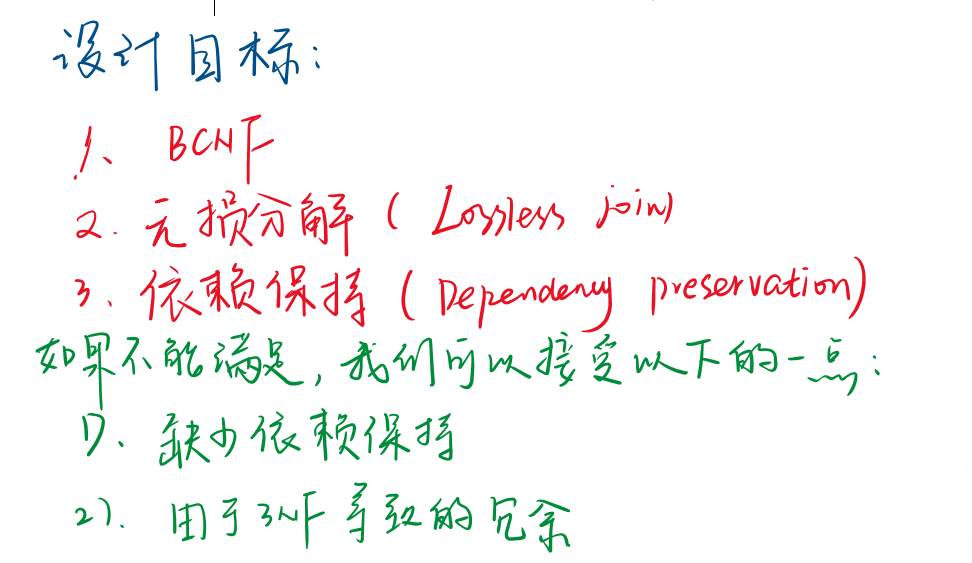 设计目标：
1、BCNF
2. 无损分解 ( Lossless join)
3、依赖保持 ( Dependency preservation)
如果不能满足, 我们可以接受以下的一点：
1)、缺少依赖保持
2)、用于3NF导致的冗余